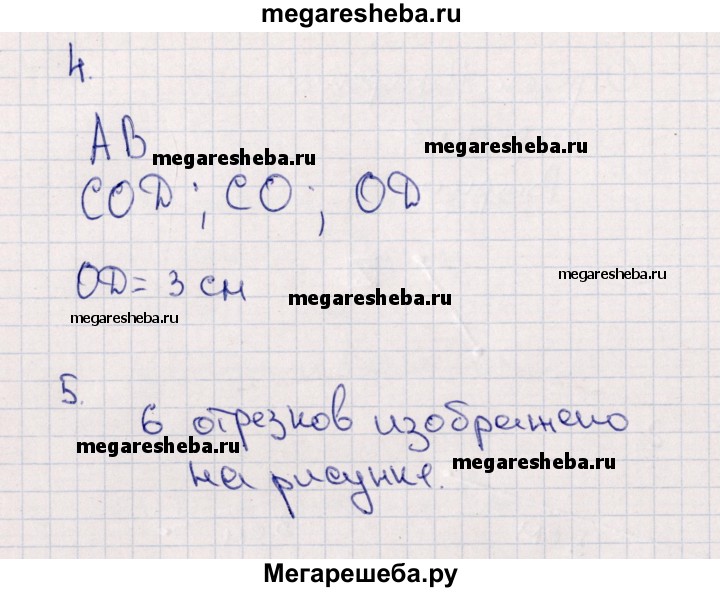 megaresheba.ru
4.
АВ
megaresheba.ru
megaresheba.ru
СОД; СО; ОД
ОД = 3 см
megaresheba.ru
megaresheba.ru
megaresheba.ru
5.
6 отрезков изображено
megaresheba.ru
на рисунке.
megaresheba.ru
Мегарешеба.ру